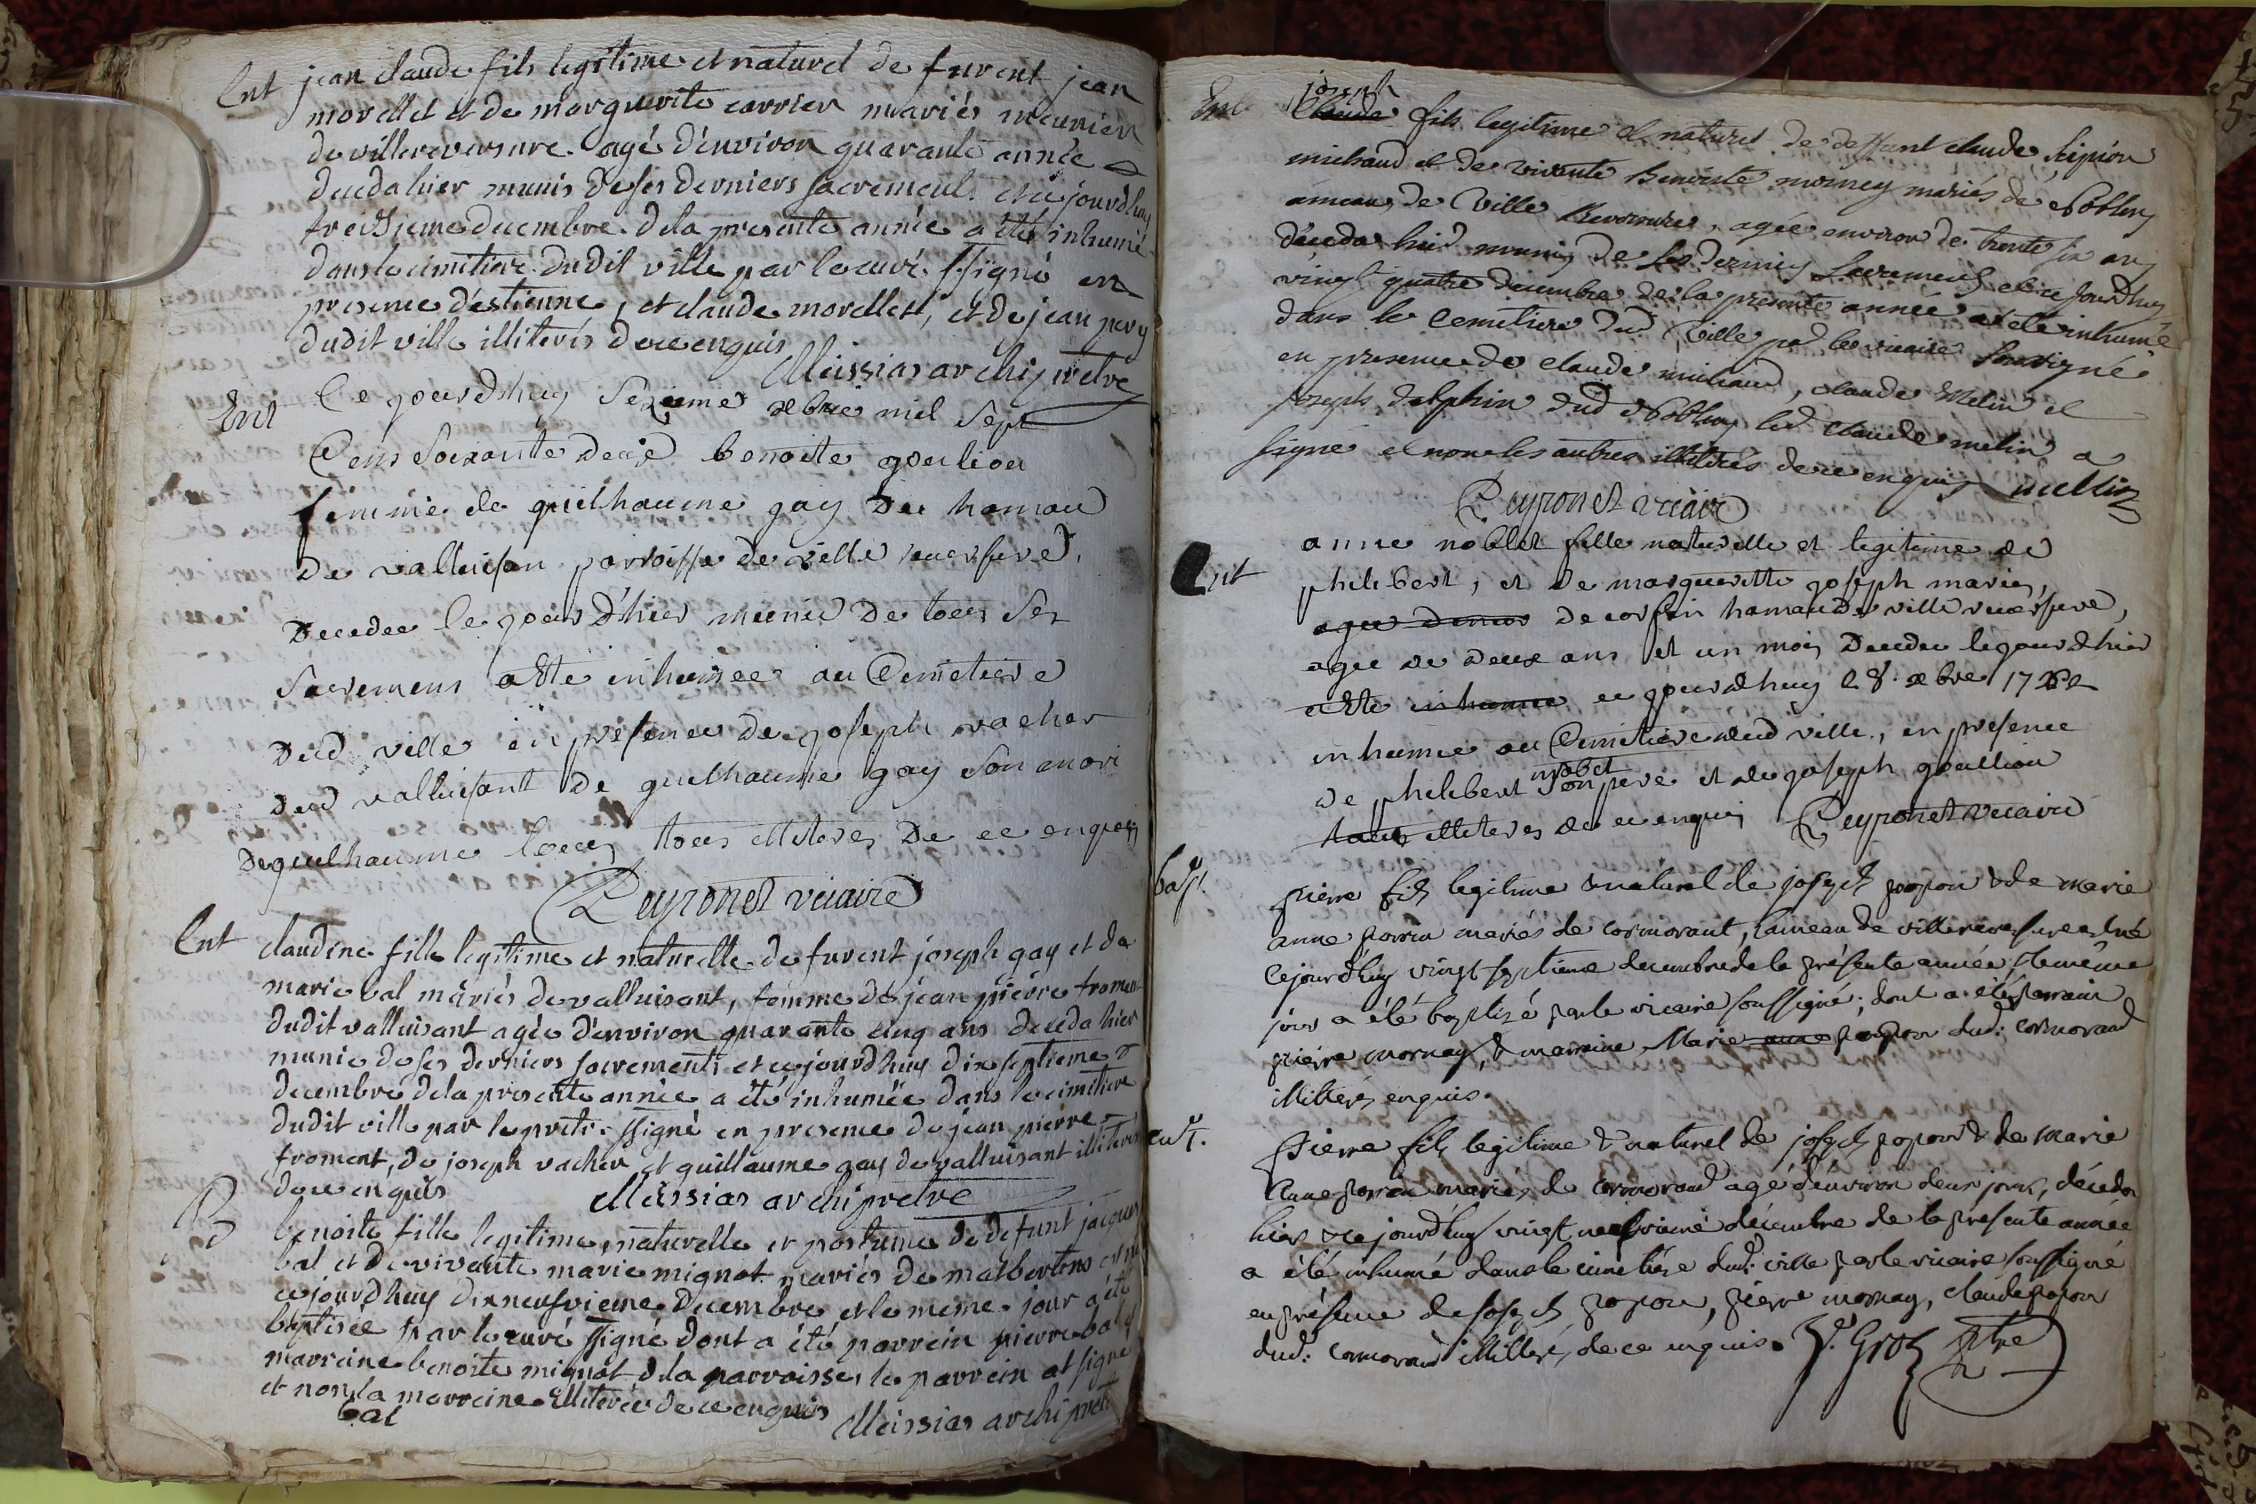 Ent jean claude fils legitime et naturel de furent jean
morellet et de marguerite carrier mariés meunier
de villereversure agé d'environ quarante année
deceda hier munis de ses derniers sacrements et cejourdhuy
treizieme decembre de la presente année a été inhumé
dans le cimitiere dudit ville par le curé ssigné en
presence d'estienne, et claude morellet, et de jean pery
dudit ville illiterés de ce enquis
Meissias archipretre
Ent Ce jourdhuy sezieme xbre mil sept
Cens soixante deux benoite goulion
femme de guilhaume gay du hamau
de valluisan parroisse de ville reversure,
Decedee le jour d'hier munie de tous ses
sacremens a été inhumee au Cemetiere
dud ville en presence de joseph vacher
dud valluisant de guilhaume gay son mari
De guilhaume tous illiteres De ce enquis
Peyronet vicaire
Ent claudine fille legitime et naturelle de furent joseph gay et de
marie bal mariés de valluisant, femme de jean pierre froment
dudit valluisant agée d'environ quarante cinq ans deceda hier
munie de ses derniers sacrements et cejourdhuy dix septieme
decembre de la presente année a été inhumée dans le cimitiere
dudit ville par le pretre ssigné en presence de jean pierre
froment, de joseph vacher et guillaume gay de valluisant illiterés
de ce enquis
Meissias archipretre
B benoite fille legitime, naturelle et postume de defunt jacques
bal et de vivante marie mignot mariés de malbertens et né
cejourdhuy dixneufvieme decembre et le meme jour a été
baptisée par le curé ssigné dont a été parrein pierre bal et
marreine benoite mignot de la parroisse, le parrein at signé
et non la marreine illiterée de ce enquis
bal
Meissias archipretre
joseph
Ent Claude fils legitime et naturel de deffunt claude scipion
michaud et de vivante Benoite morney mariés de
ameau de Ville Reversure, agée environ de trente six ans
déceda hier munis de ses derniers sacrements et ce jourdhuy
vingt quatre decembre de la presente année at été inhumé
dans le cemetiere dud ville par le vicaire soussigné
en presence de claude michaud, claude melin et
joseph delphin dud led claude melin a
signé et non les autres illitérés de ce enquis mellin
Peyronet vicaire
Ent anne noblet fille naturelle et legitime de
philibert, et de marguerite joseph mariés,
agee denvi de corfan hamau de ville reversure,
agee de deux ans et un mois Decedee le jour dhier
a été inhumee ce jourdhuy 28 xbre 1762
inhumee au Cemetiere dud ville, en presence
noblet
de philibert son pere et de joseph goullion
tous illiteres de ce enquis Peyronet vicaire
bapt. pierre fils legitime & naturel de joseph popon & de marie
anne perrin mariés de cormorant, hameau de villereversure est né
cejourdhuy vingt septieme decembre de la présente année, & le même
jour a été baptisé par le vicaire soussigné; dont a été parrain
pierre mornay, & marraine Marie anne popon dud. cormorand
illiterés enquis.
ent. pierre fils legitime & naturel de joseph popon & de marie
Anne perrin mariés de cormorand agé d'environ deux jours, décéda
hier & cejourdhuy vingt neufvieme décembre de la presente année
a été inhumé dans le cimetiére dud. ville par le vicaire soussigné
en présence de joseph popon, pierre mornay, claude popon
dud. cormorand illiterés de ce enquis. Gros ptre